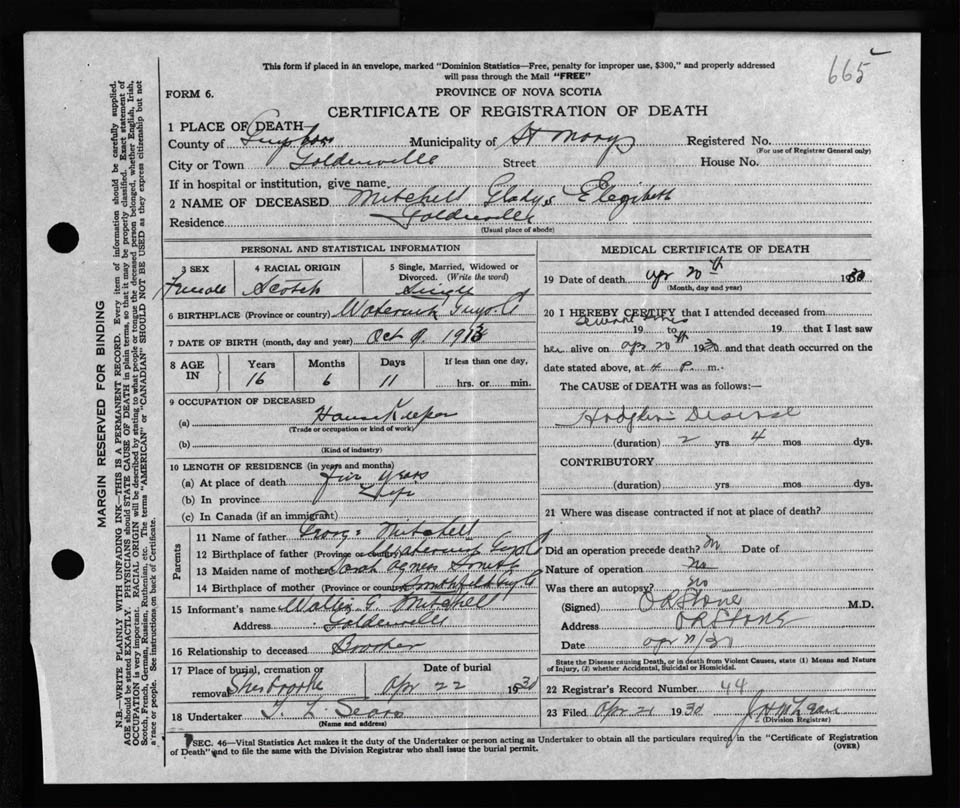 665
This form if placed in an envelope, marked "Dominion Statistics—Free, penalty for improper use, $300," and properly addressed
will pass through the Mail "FREE"
FORM 6.
PROVINCE OF NOVA SCOTIA
CERTIFICATE OF REGISTRATION OF DEATH
1 PLACE OF DEATH
County of Municipality of St Marys Registered No.
(For use of Registrar General only)
City or Town Goldenville Street House No.
If in hospital or institution, give name
2 NAME OF DECEASED Mitchell Gladys Elezibeth
Residence Goldenville
(Usual place of abode)
PERSONAL AND STATISTICAL INFORMATION
3 SEX 4 RACIAL ORIGIN 5 Single, Married, Widowed or
Divorced. (Write the word)
Female Scotch Single
6 BIRTHPLACE (Province or country) Guys. Co
7 DATE OF BIRTH (month, day and year) Oct 9. 1913
8 AGE IN Years Months Days If less than one day,
16 6 11 hrs. or min.
9 OCCUPATION OF DECEASED
(a) House Keeper
(Trade or occupation or kind of work)
(b)
(Kind of industry)
10 LENGTH OF RESIDENCE (in years and months)
(a) At place of death years
(b) In province Life
(c) In Canada (if an immigrant)
Parents
11 Name of father George Mitchell
12 Birthplace of father (Province or country)
13 Maiden name of mother Sarah Agness Smith
14 Birthplace of mother (Province or country) Smithfield
15 Informant's name Mitchell
Address Goldenville
16 Relationship to deceased Brother
17 Place of burial, cremation or Date of burial
removal Sherbrooke Apr 22 1930
18 Undertaker Sears
(Name and address)
MEDICAL CERTIFICATE OF DEATH
19 Date of death Apr 20th 1930
(Month, day and year)
20 I HEREBY CERTIFY that I attended deceased from
Several times
19 to 19 that I last saw
her alive on Apr 20th 1930 and that death occurred on the
date stated above, at 4 P. m.
The CAUSE of DEATH was as follows:—
Hodgkins Disease
(duration) 2 yrs. 4 mos. dys.
CONTRIBUTORY
(duration) yrs. mos. dys.
21 Where was disease contracted if not at place of death?
Did an operation precede death? Date of
Nature of operation No
Was there an autopsy? No
(Signed) M.D.
Address
Date
State the Disease causing Death, or in death from Violent Causes, state (1) Means and Nature
of Injury, (2) whether Accidental, Suicidal or Homicidal.
22 Registrar's Record Number 44
23 Filed Apr 21 1930
(Division Registrar)
SEC. 46—Vital Statistics Act makes it the duty of the Undertaker or person acting as Undertaker to obtain all the particulars required in the "Certificate of Registration
of Death" and to file the same with the Division Registrar who shall issue the burial permit.
(OVER)
MARGIN RESERVED FOR BINDING
N.B.—WRITE PLAINLY WITH UNFADING INK—THIS IS A PERMANENT RECORD. Every item of information should be carefully supplied.
AGE should be stated EXACTLY. PHYSICIANS should STATE CAUSE OF DEATH in plain terms, so that it may be properly classified. Exact statement of
OCCUPATION is very important. RACIAL ORIGIN will be described by stating to what people or tongue the deceased person belonged, whether English, Irish,
Scotch, French, German, Russian, Ruthenian, etc. The terms "AMERICAN" or "CANADIAN" SHOULD NOT BE USED as they express citizenship but not
a race or people. See instructions on back of Certificate.